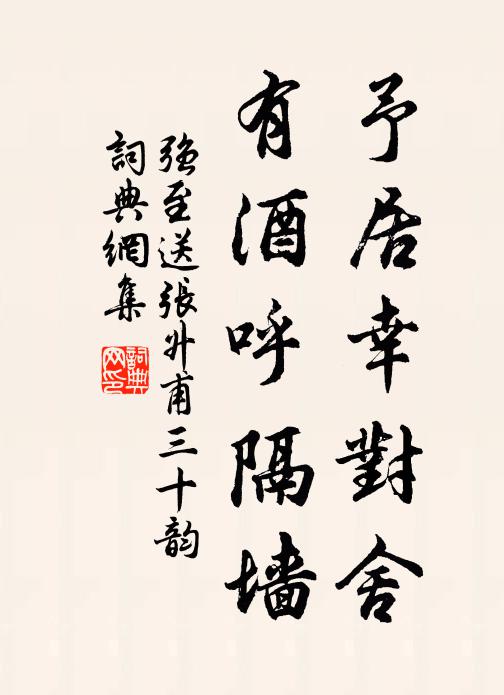 予居幸對舍
有酒呼隔墙
強至送張升甫三十韵
詞典網集
詞典
网印